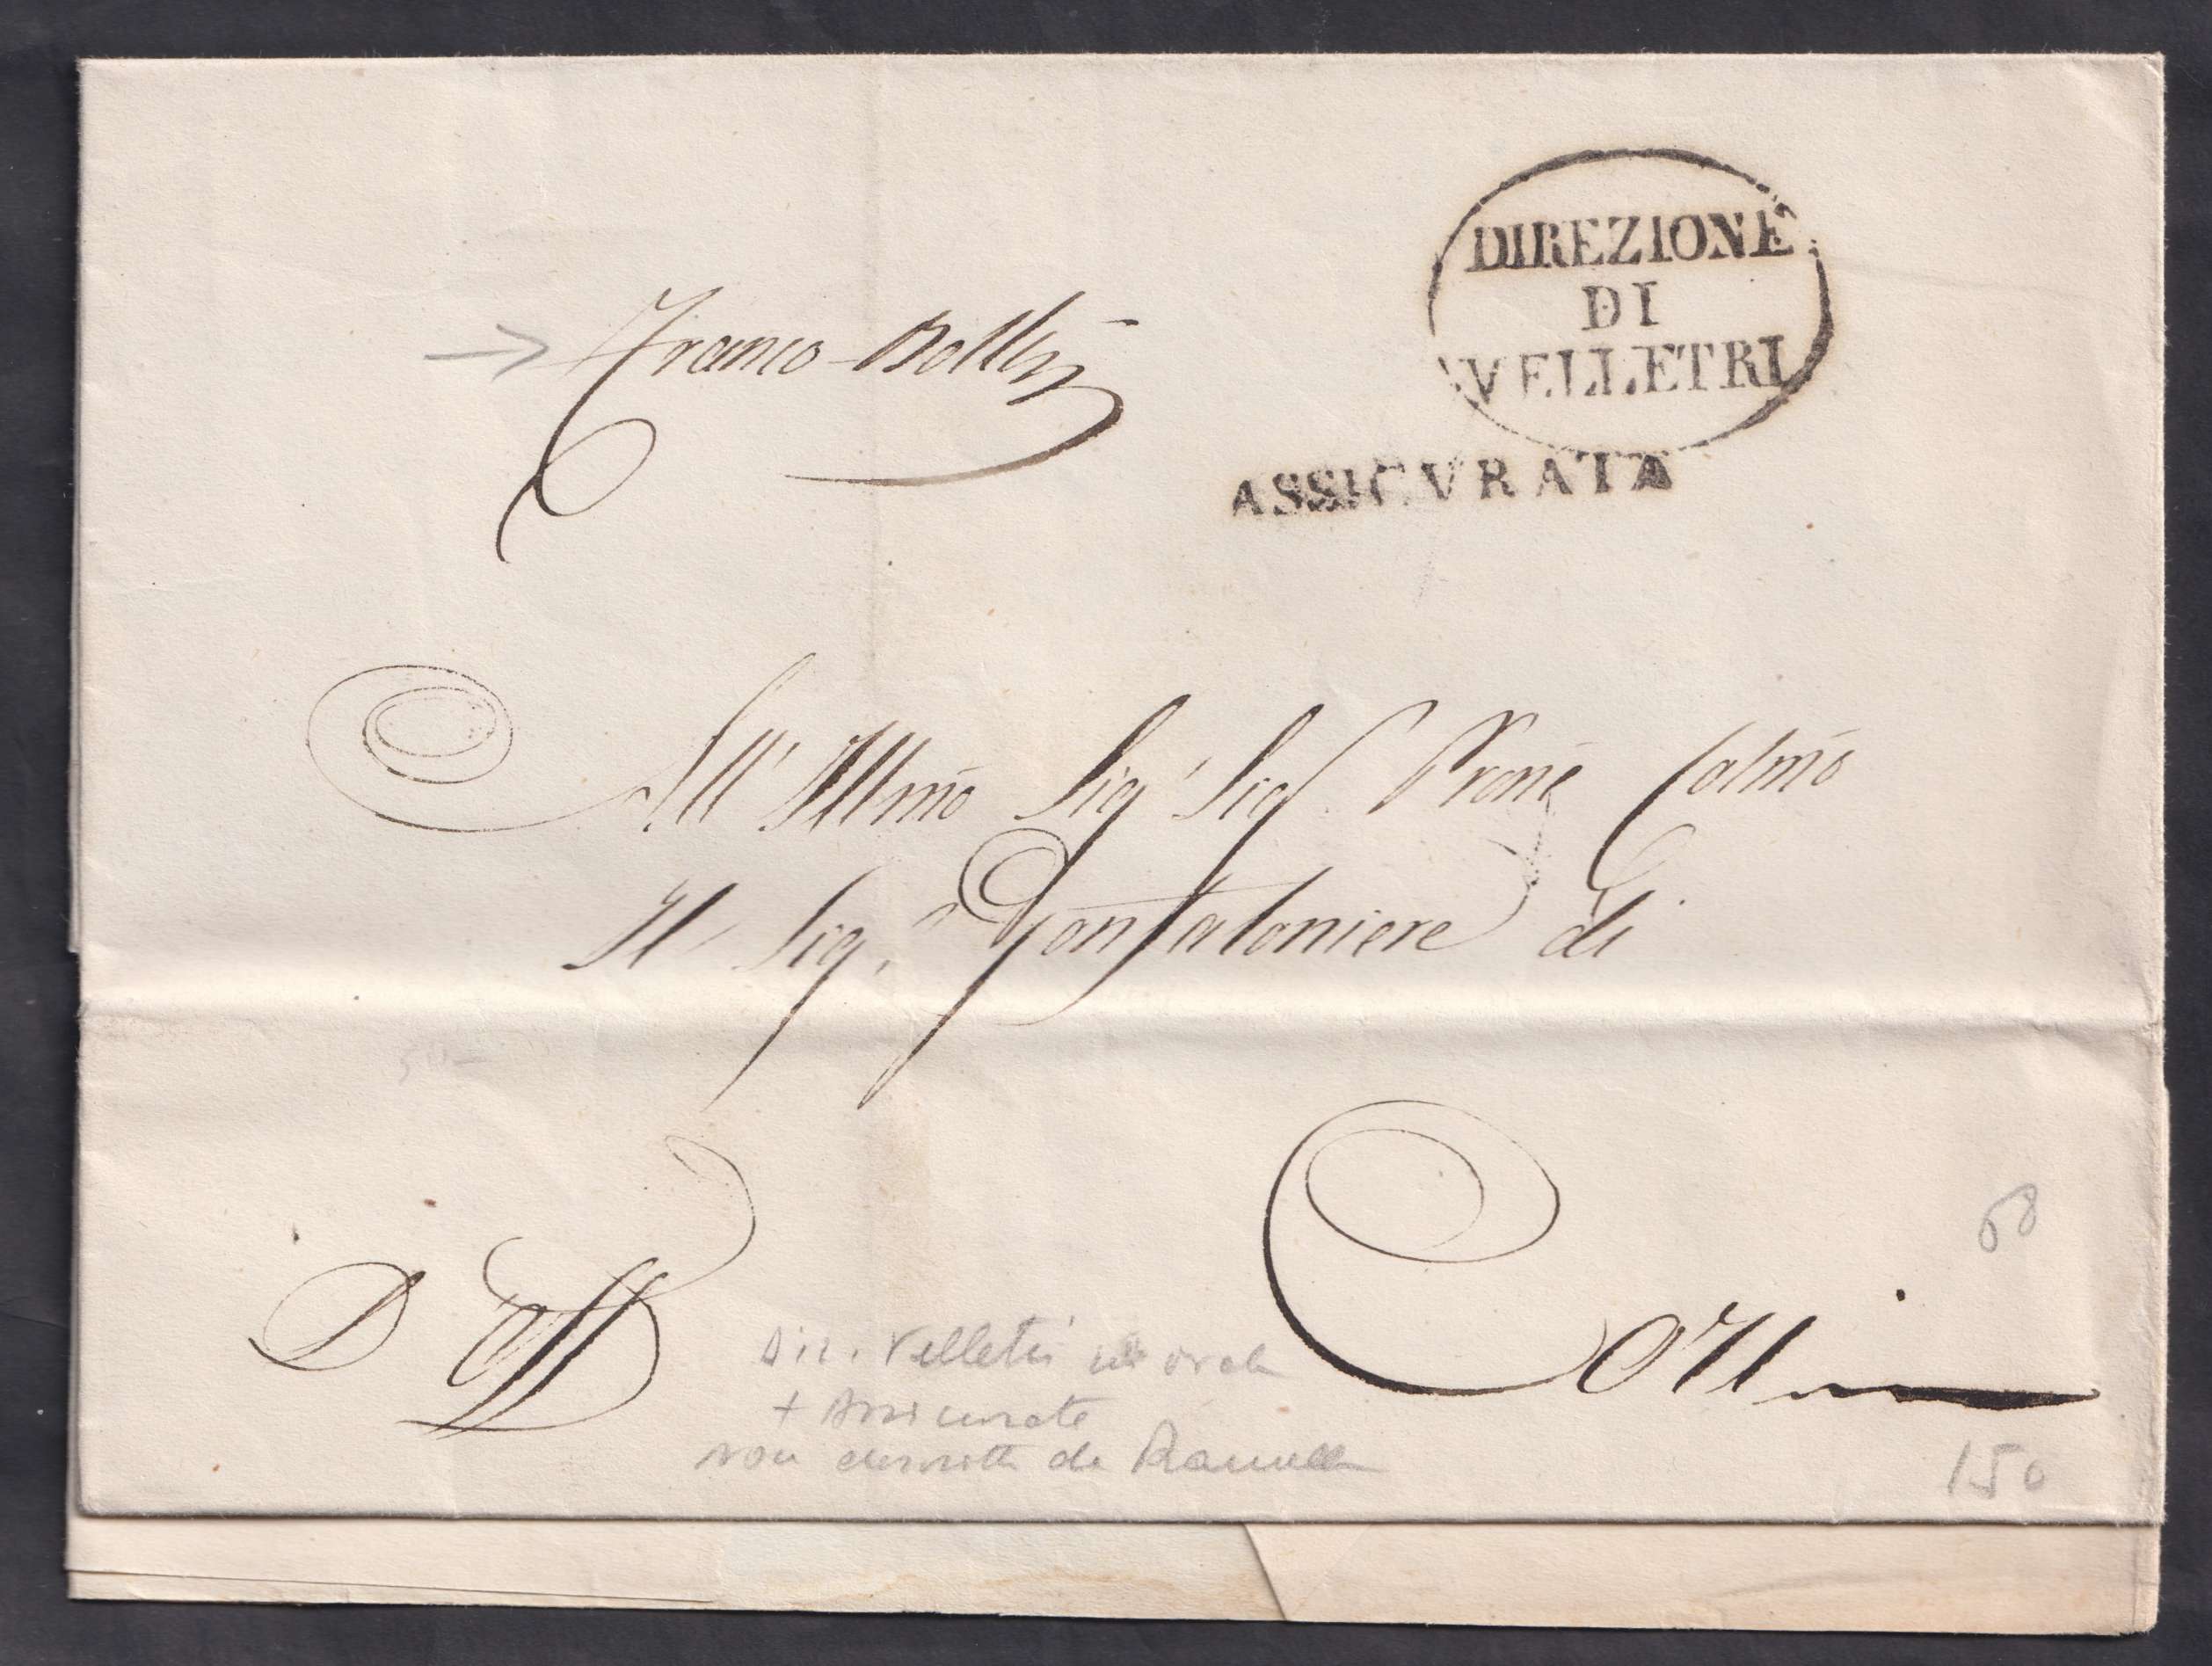 DIREZIONE
DI
VELLETRI
ASSICVRATA
Franco-Bolli
All' Illmo Sig' Sig Prone Colmo
Il Sig. Gonfaloniere di
D'Uff
Cori
68
Dir. Velletri in ovale
+ Assicurata
non censita da
150